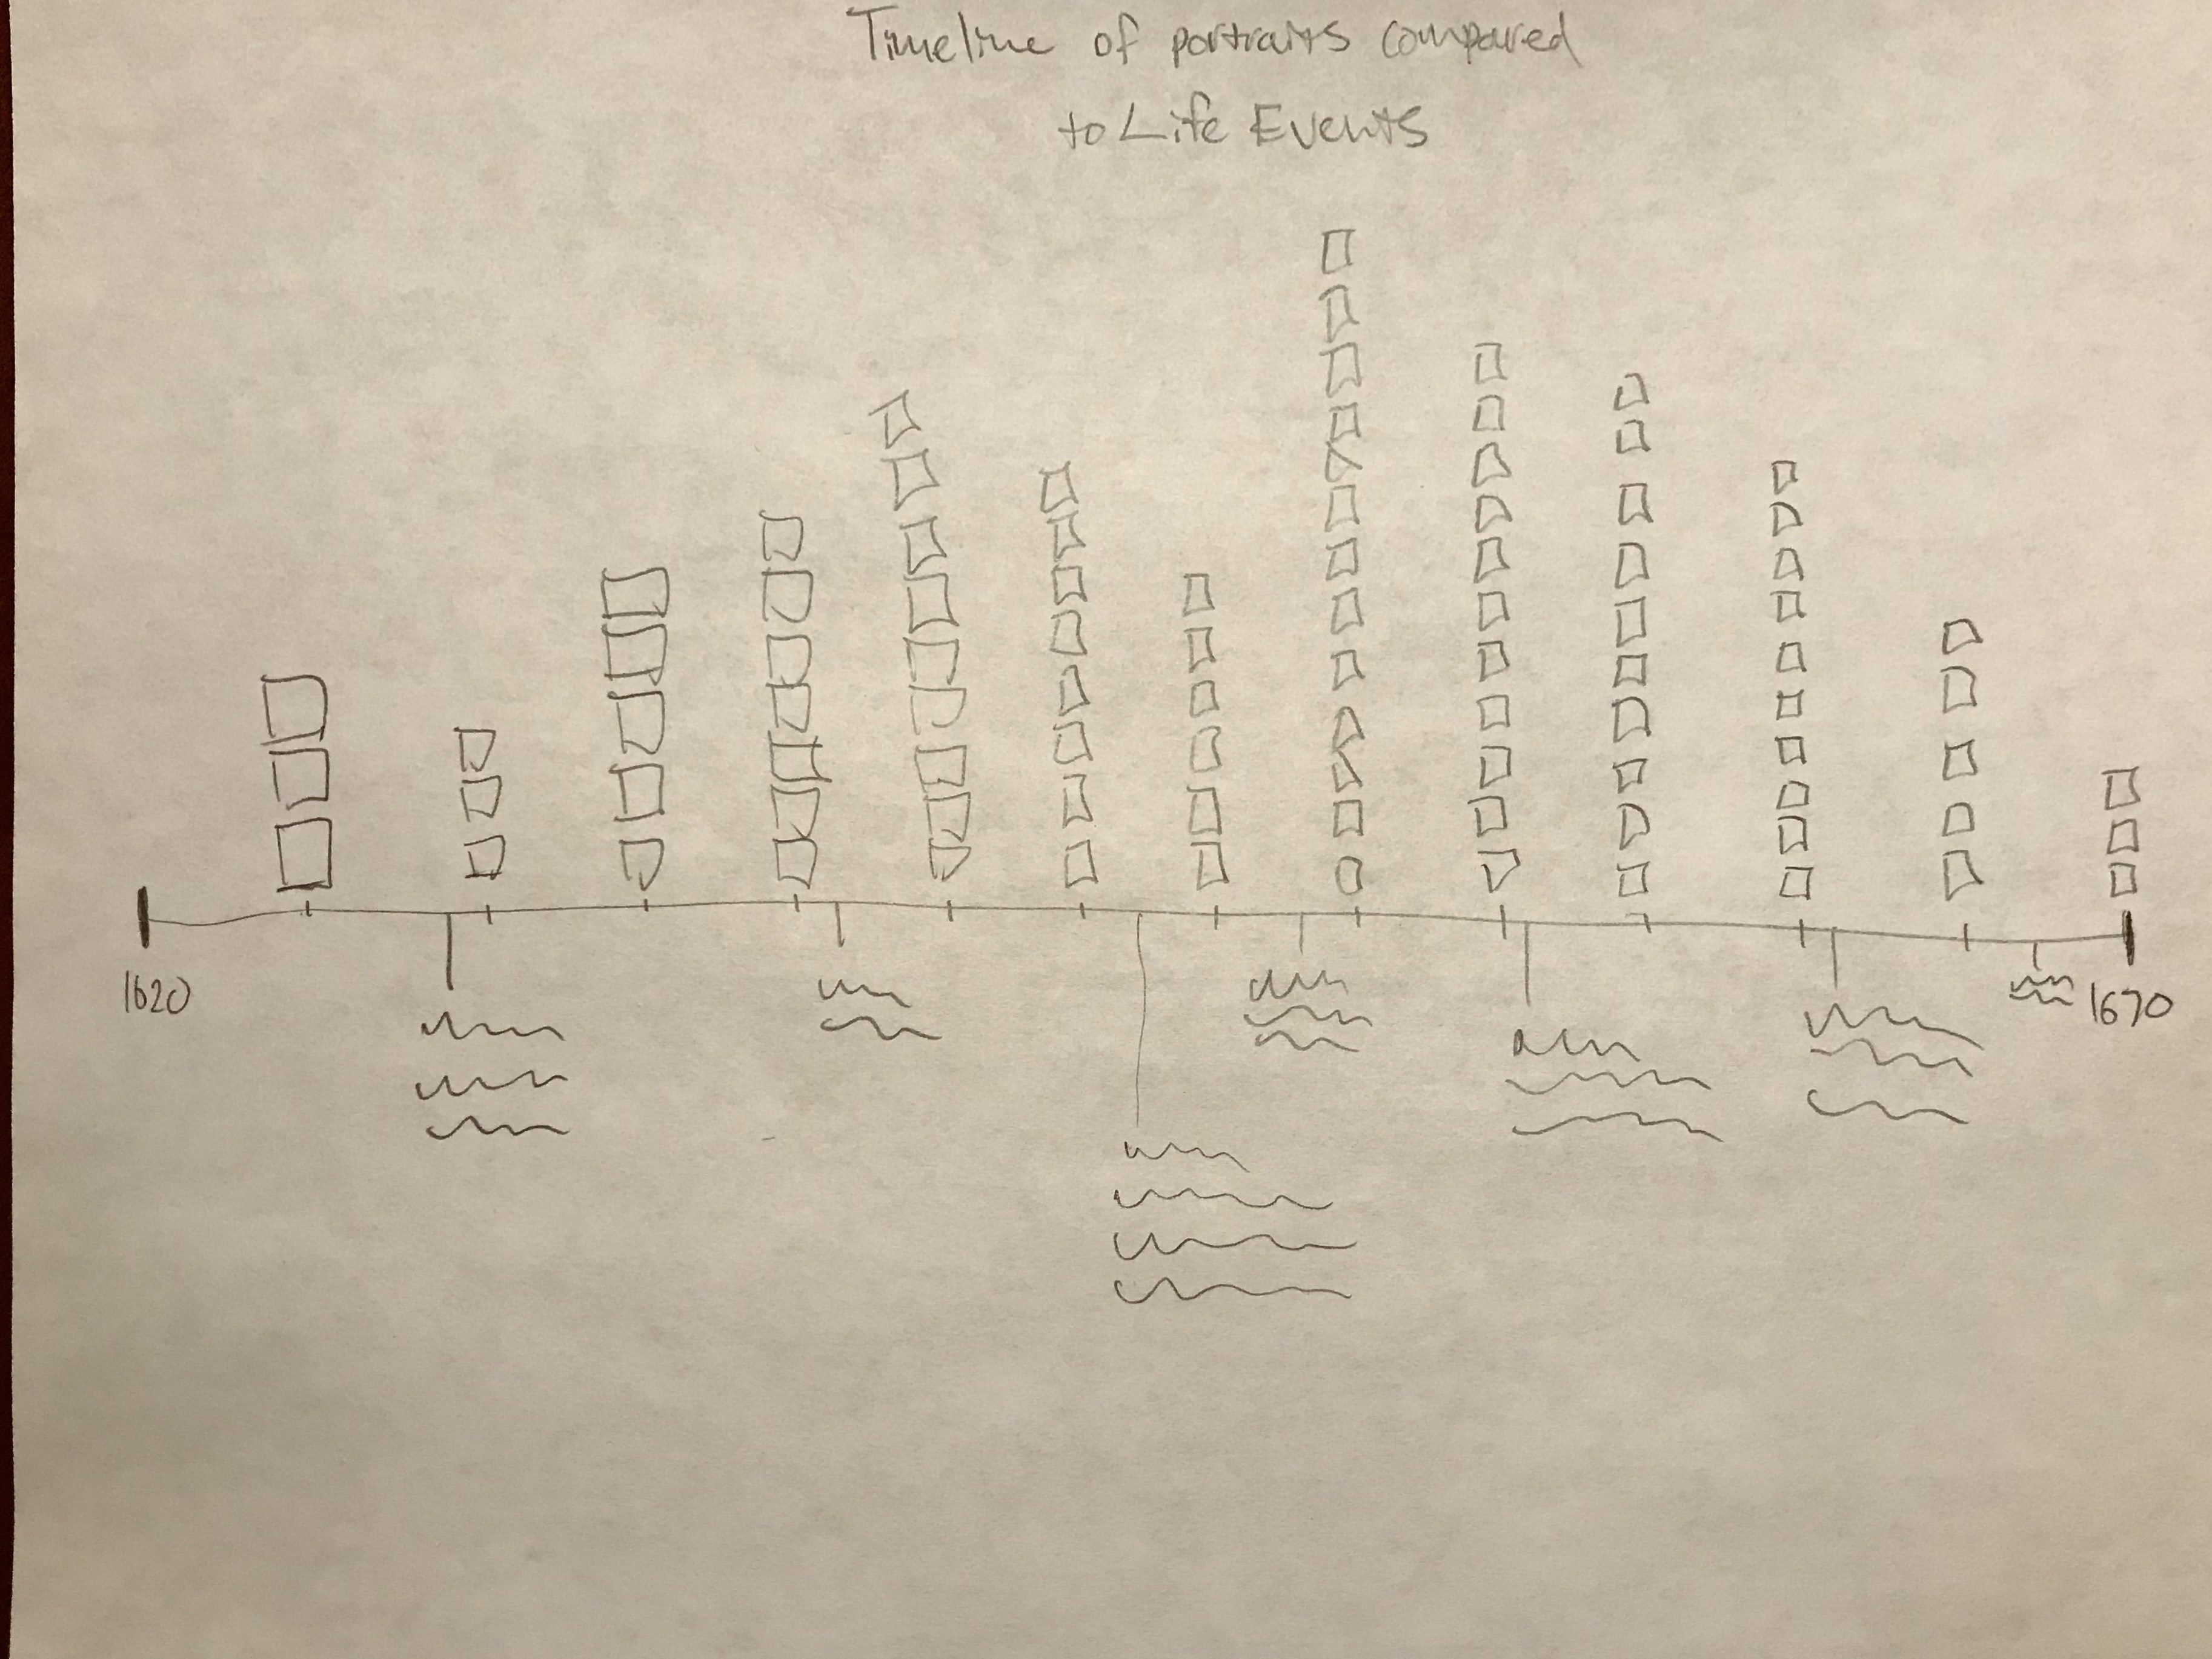 Timeline of portraits compared
to Life Events
1620
1670